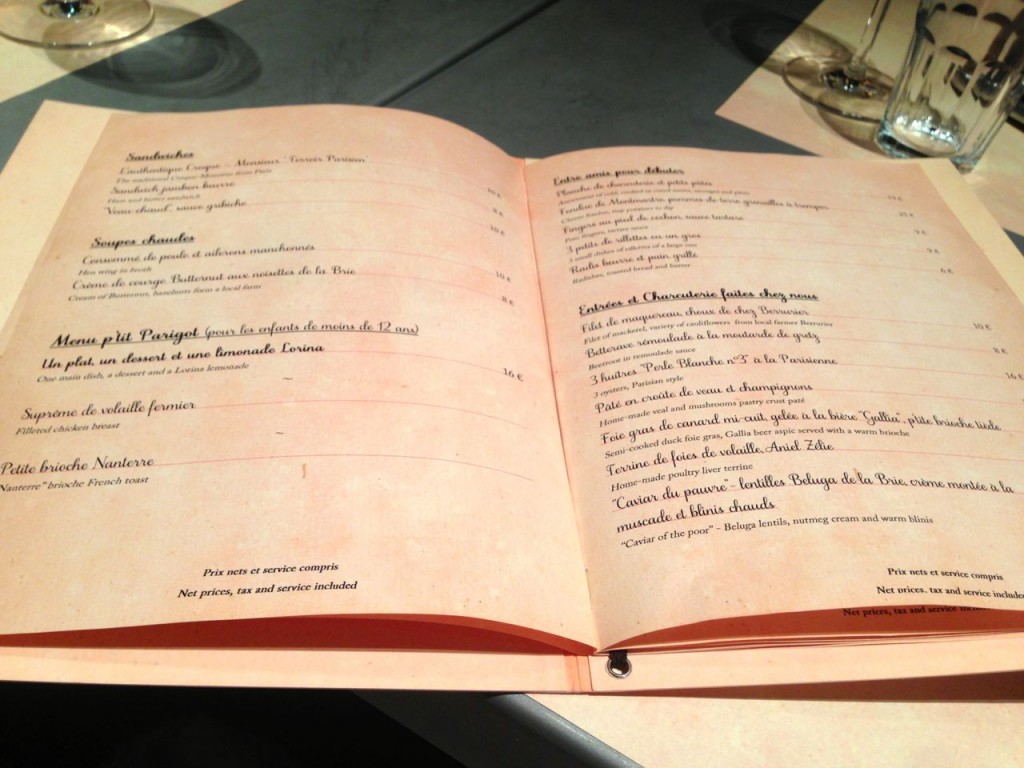 Sandwiches
L'authentique Croque - Monsieur "Terroir Parisien"
The traditional Croque-Monsieur from Paris
Sandwich jambon beurre
Ham and butter sandwich
"Veau chaud", sauce gribiche
10 €
8 €
10 €
Soupes chaudes
Consommé de poule et ailerons manchonnés
Hen wing in broth
10 €
Crème de courge Butternut aux noisettes de la Brie
Cream of Butternut, hazelnuts form a local farm
8 €
Menu p'tit Parigot (pour les enfants de moins de 12 ans)
Un plat, un dessert et une limonade Lorina
One main dish, a dessert and a Lorina lemonade
16 €
Suprême de volaille fermier
Filleted chicken breast
Petite brioche Nanterre
Nanterre" brioche French toast
Prix nets et service compris
Net prices, tax and service included
Entre amis pour débuter
Planche de charcuterie et petits pâtés
Fondue de Montmartre, pommes de terre grenailles à tremper
Fingers au pied de cochon, sauce tartare
Pork fingers, tartare sauce
9 €
3 petits de rillettes en un gros
3 small dishes of rillettes of a large one
9 €
Radis beurre et pain grillé
Radishes, toasted bread and butter
6 €
Entrées et Charcuterie faites chez nous
Filet de maquereau, choux de chez Berrurier
Filet of mackerel, variety of cauliflowers from local farmer Berrurier
10 €
Betterave rémoulade à la moutarde de gretz
Beetroot in remoulade sauce
8 €
3 huîtres "Perle Blanche n°3" à la Parisienne
3 oysters, Parisian style
16 €
Pâté en croûte de veau et champignons
Home-made veal and mushrooms pastry crust paté
Foie gras de canard mi-cuit, gelée à la bière "Gallia", p'tite brioche tiède
Semi-cooked duck foie gras, Gallia beer aspic served with a warm brioche
Terrine de foies de volaille, Aniel Zélie
Home-made poultry liver terrine
"Caviar du pauvre" - lentilles Beluga de la Brie, crème montée à la
muscade et blinis chauds
"Caviar of the poor" - Beluga lentils, nutmeg cream and warm blinis
Prix nets et service compris
Net prices, tax and service include
Net prices, tax and service